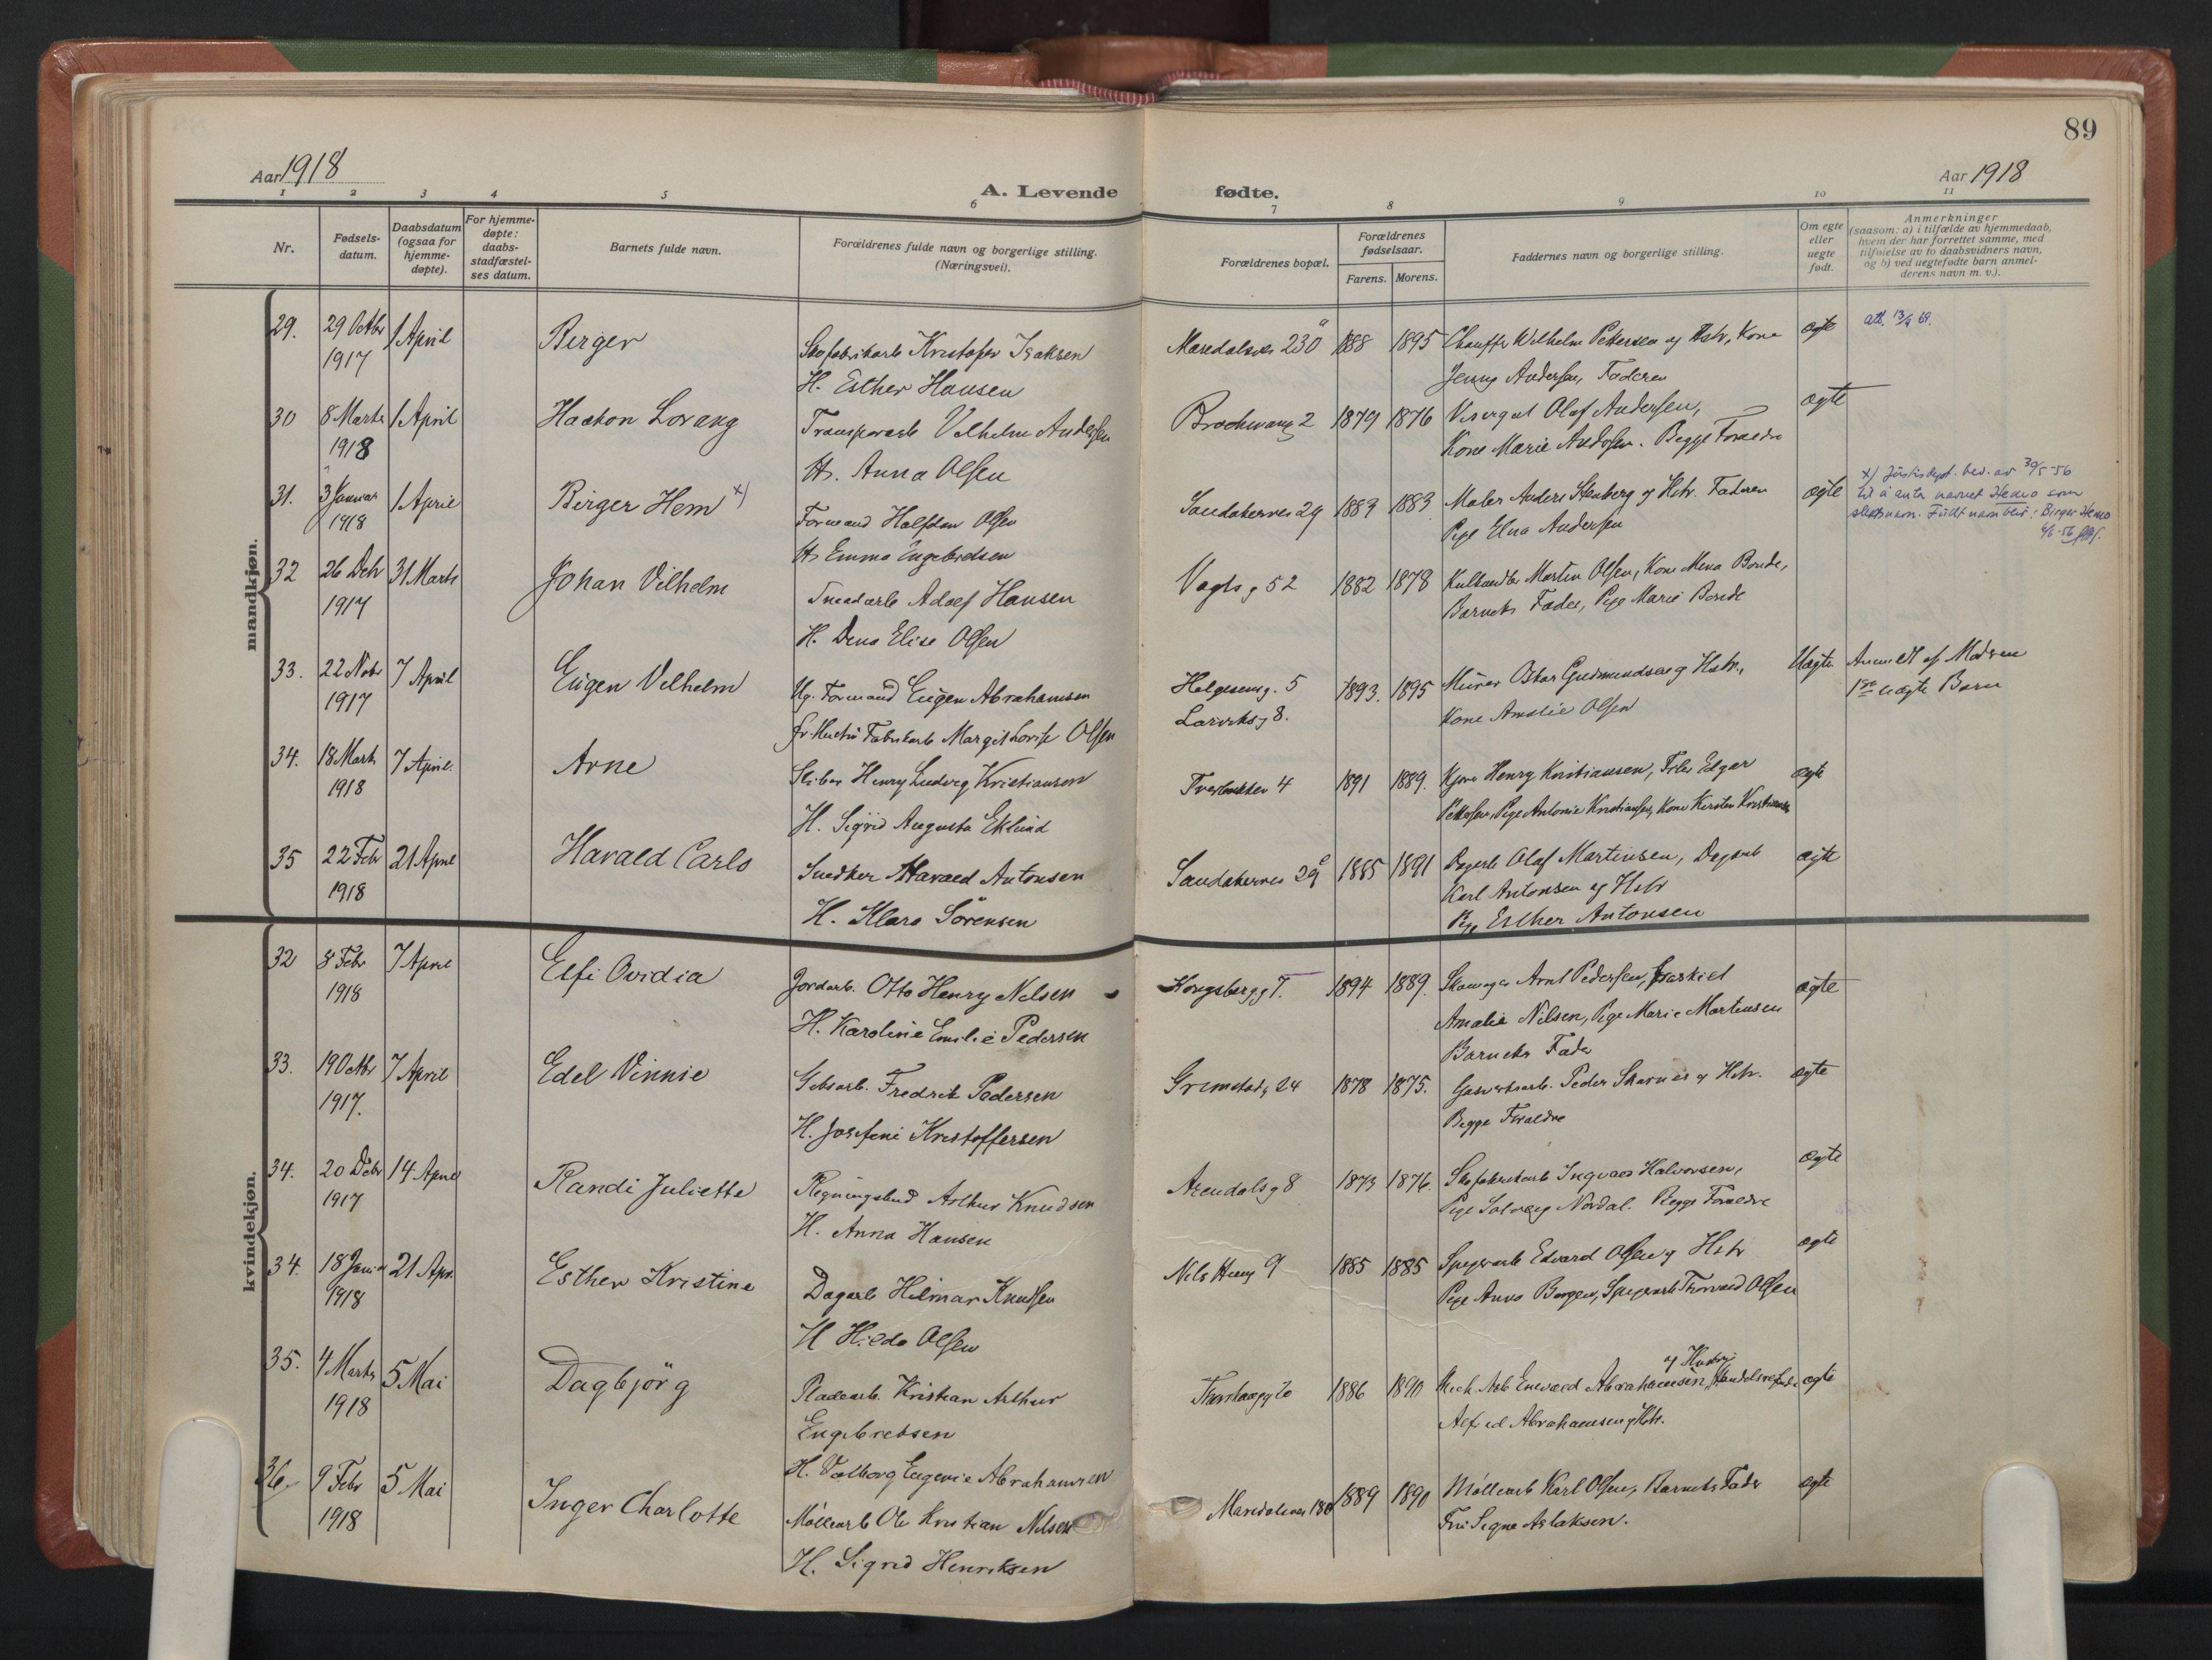 89
Aar 1918
A. Levende fødte.
Aar 1918
1 2 3 4 5 6 7 8 9 10 11
Nr.
Fødsels-
datum.
Daabsdatum
(ogsaa for
hjemme-
døpte).
For hjemme-
døpte:
daabs-
stadfæstel-
ses datum.
Barnets fulde navn.
Forældrenes fulde navn og borgerlige stilling.
(Næringsvei).
Forældrenes bopæl.
Forældrenes
fødselsaar.
Farens. Morens.
Faddernes navn og borgerlige stilling.
Om egte
eller
uegte
født.
Anmerkninger
(saasom: a) i tilfælde av hjemmedaab,
hvem der har forrettet samme, med
tilføielse av to daabsvidners navn,
og b) ved uegtefødte barn anmel-
derens navn m. v.).
mandkjøn.
29. 29 Octbr 1 April Birger Skofabrikarb Kristofer Isaksen 1888 1895 Chauffr Wilhelm Pettersen og Hstr, Kone ægte att. 13/9 69.
1917 H. Esther Hansen Jenny Andersen, Faderen
30 8 Marts 1 April Haakon Lorang Transportarb Vilhelm Andersen 1879 1876 Visergut Olaf Andersen, ægte
1918 H. Anna Olsen Kone Marie Andersen. Begge Forældre
31. 3 Januar 1 April Birger Hem x) Formand Halfdan Olsen Sandakerveien 29 1883 1883 Maler Anders Stenberg og Hstr. Faderen ægte x) Justisdept. bev. av 30/5-56
1918 H. Emma Engebretsen Pige Elna Andersen til å anta navnet Hemo som
slektsnavn. Fullt navn blir: Birger Hemo
32 26 Debr 31 Marts Johan Vilhelm Adolf Hansen Vogts g 52 1882 1878 Martin Olsen, Kone Mena Bonde,
1917 H. Dena Elise Olsen Barnets Fader, Pige Marie Bonde
33. 22 Nobr 7 April Eugen Vilhelm Ug. Formand Eugen Abrahamsen Helgesensg. 5 1893. 1895 Murer Oskar Gudmundsen og Hstr., Uægte Anmeldt af Modren
1917 Fabrikarb Margit Lovise Olsen Larviksg 8. Kone Amalie Olsen 1ste uægte Barn
34. 18 Marts 7 April. Arne Sliber Henry Ludvig Kristiansen Tverbakken 4 1891 1889. Henry Kristiansen, Edgar ægte
1918 H. Sigrid Augusta Eklund Pettersen, Pige Antonie Kristiansen, Kone Kirsten Kristiansen
35 22 Febr 21 April Harald Carlo Snedker Harald Antonsen Sandakerveien 29 1885 1891 Dagarb Olaf Martinsen, Dagarb ægte
1918 H. Klara Sörensen Karl Antonsen og Hstr
Pige Esther Antonsen
kvindekjøn.
32 8 Febr 7 April Elfi Ovidia Jordarb. Otto Henry Nilsen Kongsbergg 7. 1894 1889. Skomager Arnt Pedersen, ægte
1918 H. Karoline Emilie Pedersen Amalie Nilsen, Pige Marie Martinsen
Barnets Fader
33. 19 Octbr 7 April Edel Vinnie Gibsarb. Fredrik Pedersen Grimstadg 24 1878 1875. Gasverksarb. Peder Skarnes og Hstr. ægte
1917. H. Josefine Kristoffersen Begge Forældre
34. 20 Debr 14 April Randi Juliette Regningsbud Arthur Knudsen Arendalsg 8 1873 1876. Skofabrikarb Ingvald Halvorsen, ægte
1917 H. Anna Hansen Pige Solveig Nordal. Begge Forældre
34. 18 Januar 21 Apr. Esther Kristine Dagarb Hilmar Knudsen 9 1885 1885 Spigerarb Edvard Olsen og Hstr ægte
1918 H Hilda Olsen Pige Anna Borgen, Spigerarb Thorvald Olsen
35. 4 Marts 5 Mai Dagbjörg Pladearb. Kristian Arthur 1886 1890 Mech. Arb Enevald Abrahamsen og Hustru, ægte
1918 Engebretsen Alfred Abrahamsen og Hstr.
H. Valborg Eugenie Abrahamsen
36. 9 Febr 5 Mai Inger Charlotte Møllearb Ole Kristian Nilsen Maridalsveien 180 1889 1890 Møllearb Karl Olsen, Barnets Fader ægte
1918 H. Sigrid Henriksen Signe Aslaksen.